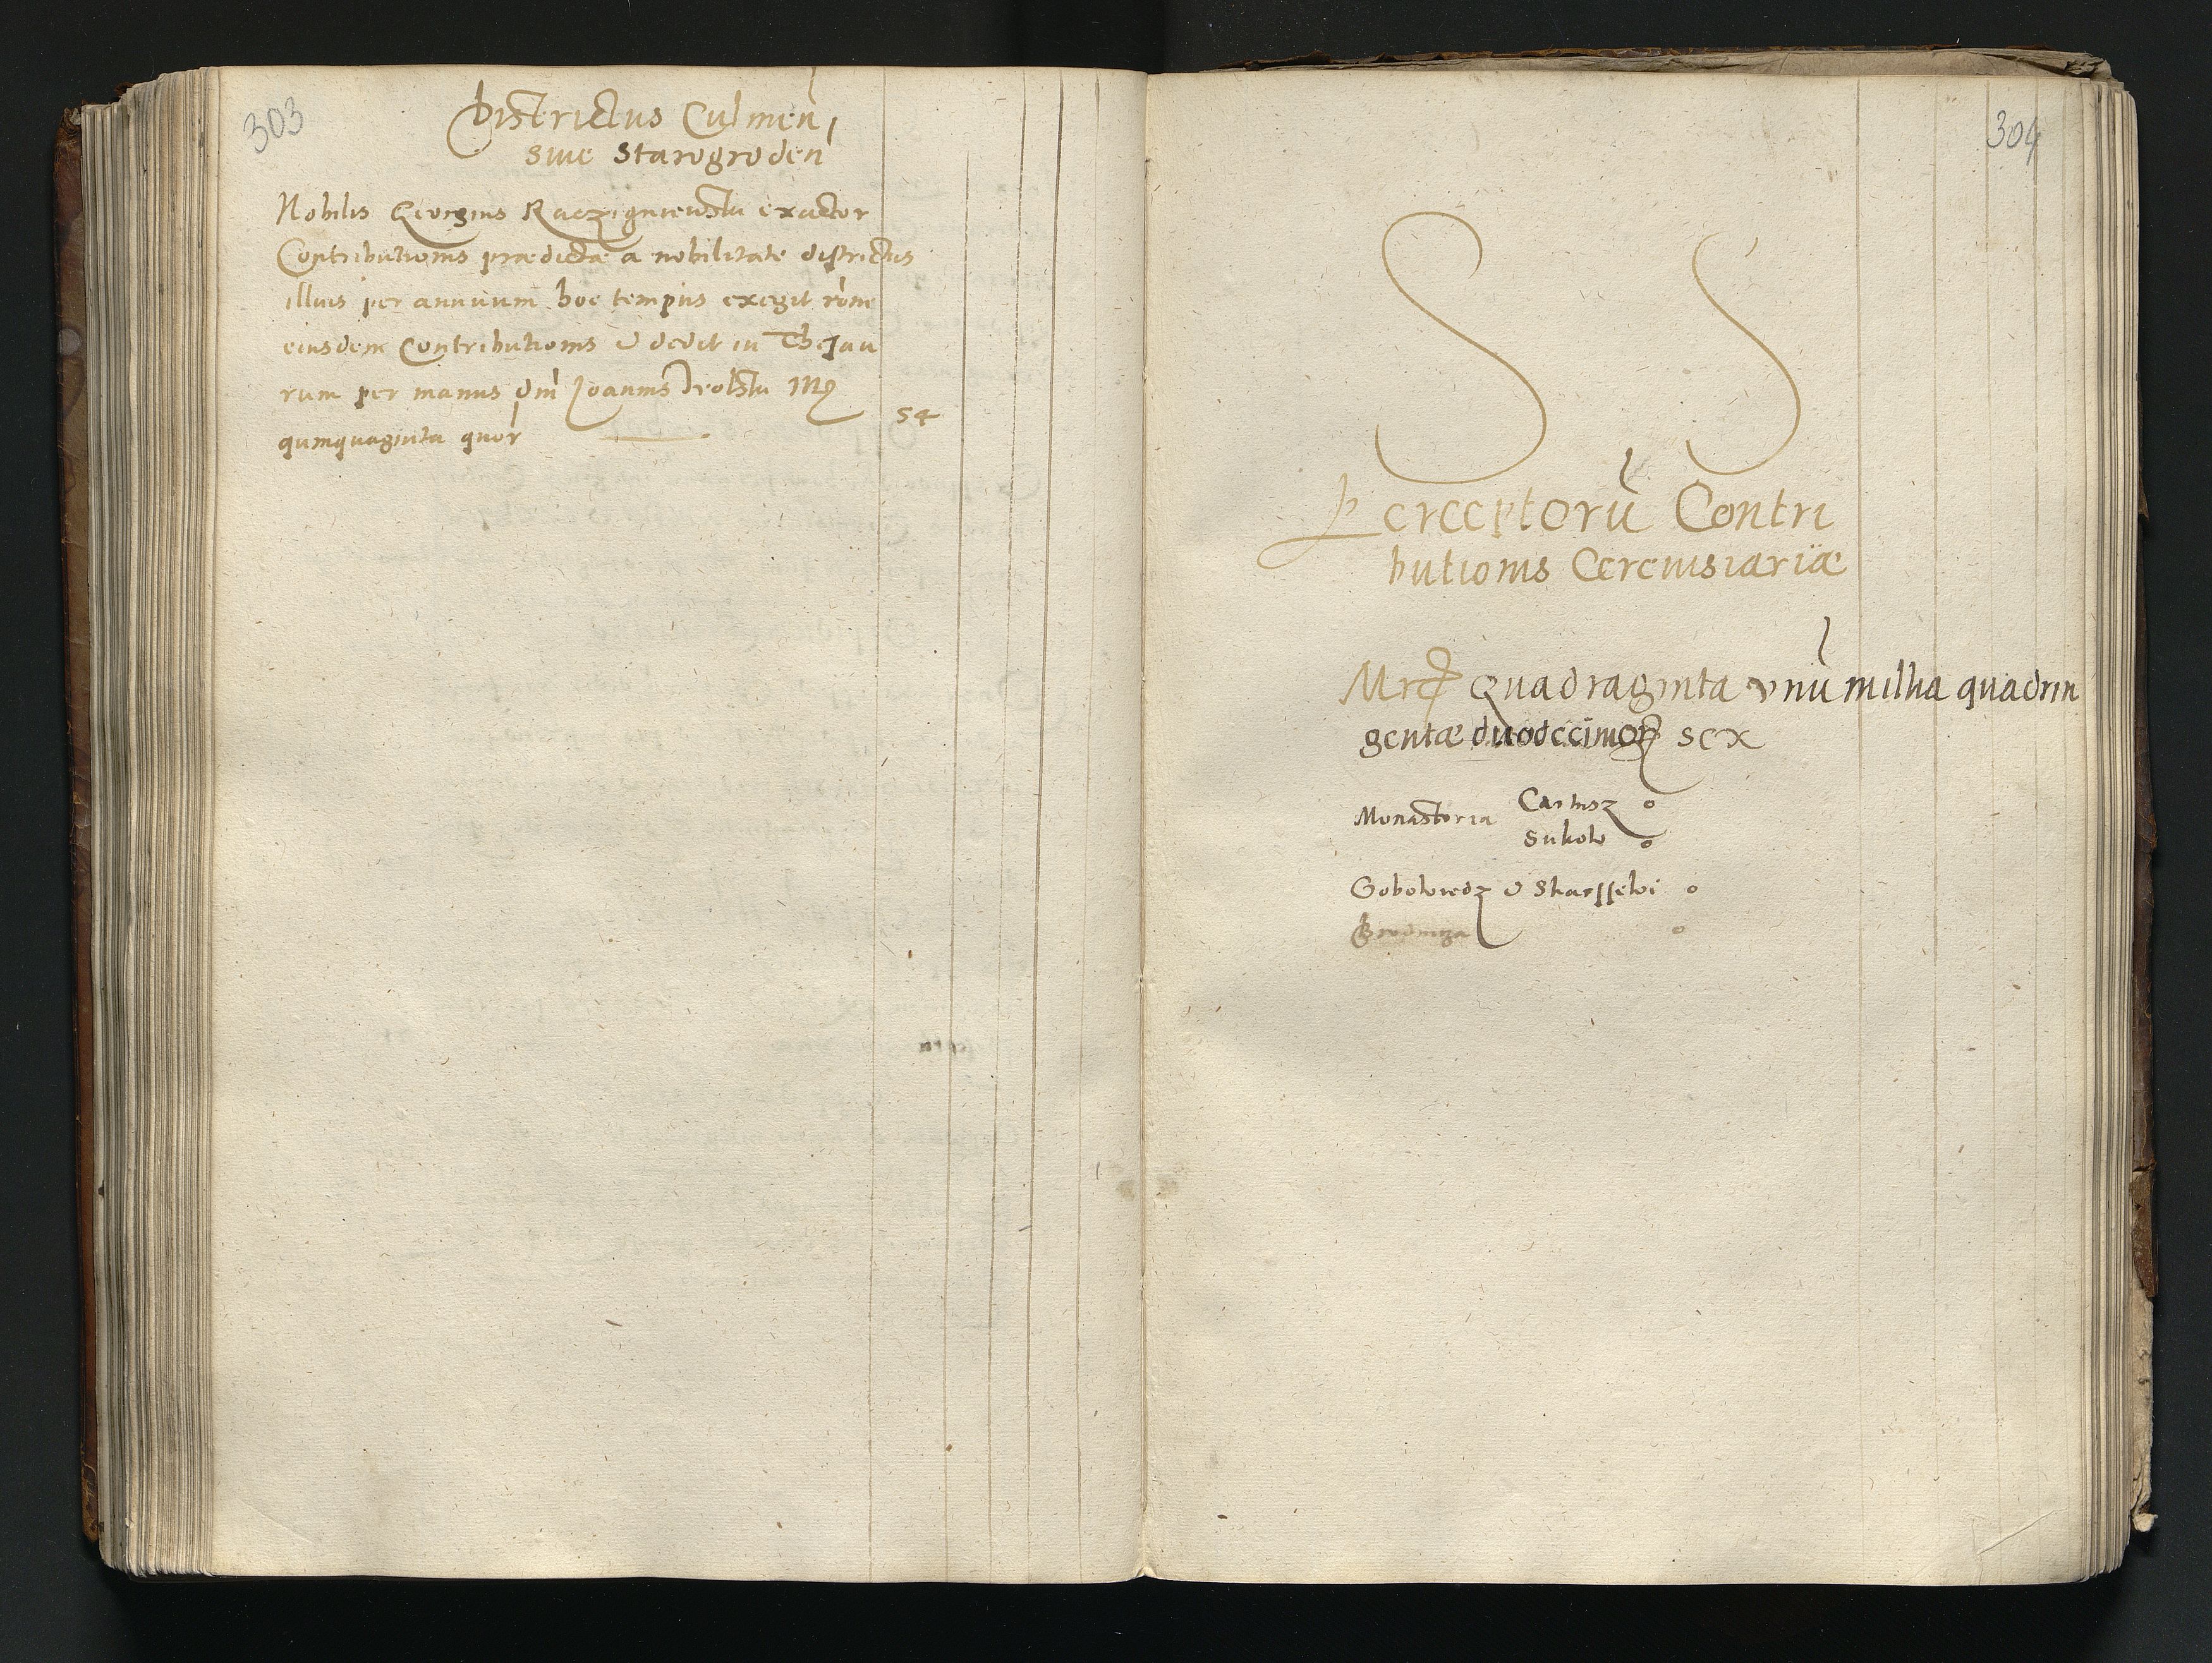 303
Districtus Culmen
siue Starogroden
Nobilis Georgius exactor
Contributionis prædictæ a nobilitate districtus
illius per annuum hoc tempus exegit rōne
eiusdem Contributionis & dedit in Thesau
rum per manus dni Joannis Mrc
quinquaginta quor
54
304
S S
Perceptorū Contri
butionis Cereuisiariæ
Mrc Quadraginta vnū millia quadrin
gentæ duodecim gr sex
Monasteria Cartusz 0
Sukow 0
Gobolowedz & Skarssewi 0
Brodniza 0